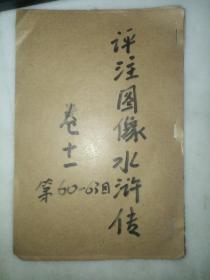 评注图像水浒传
卷十一
第60-63回